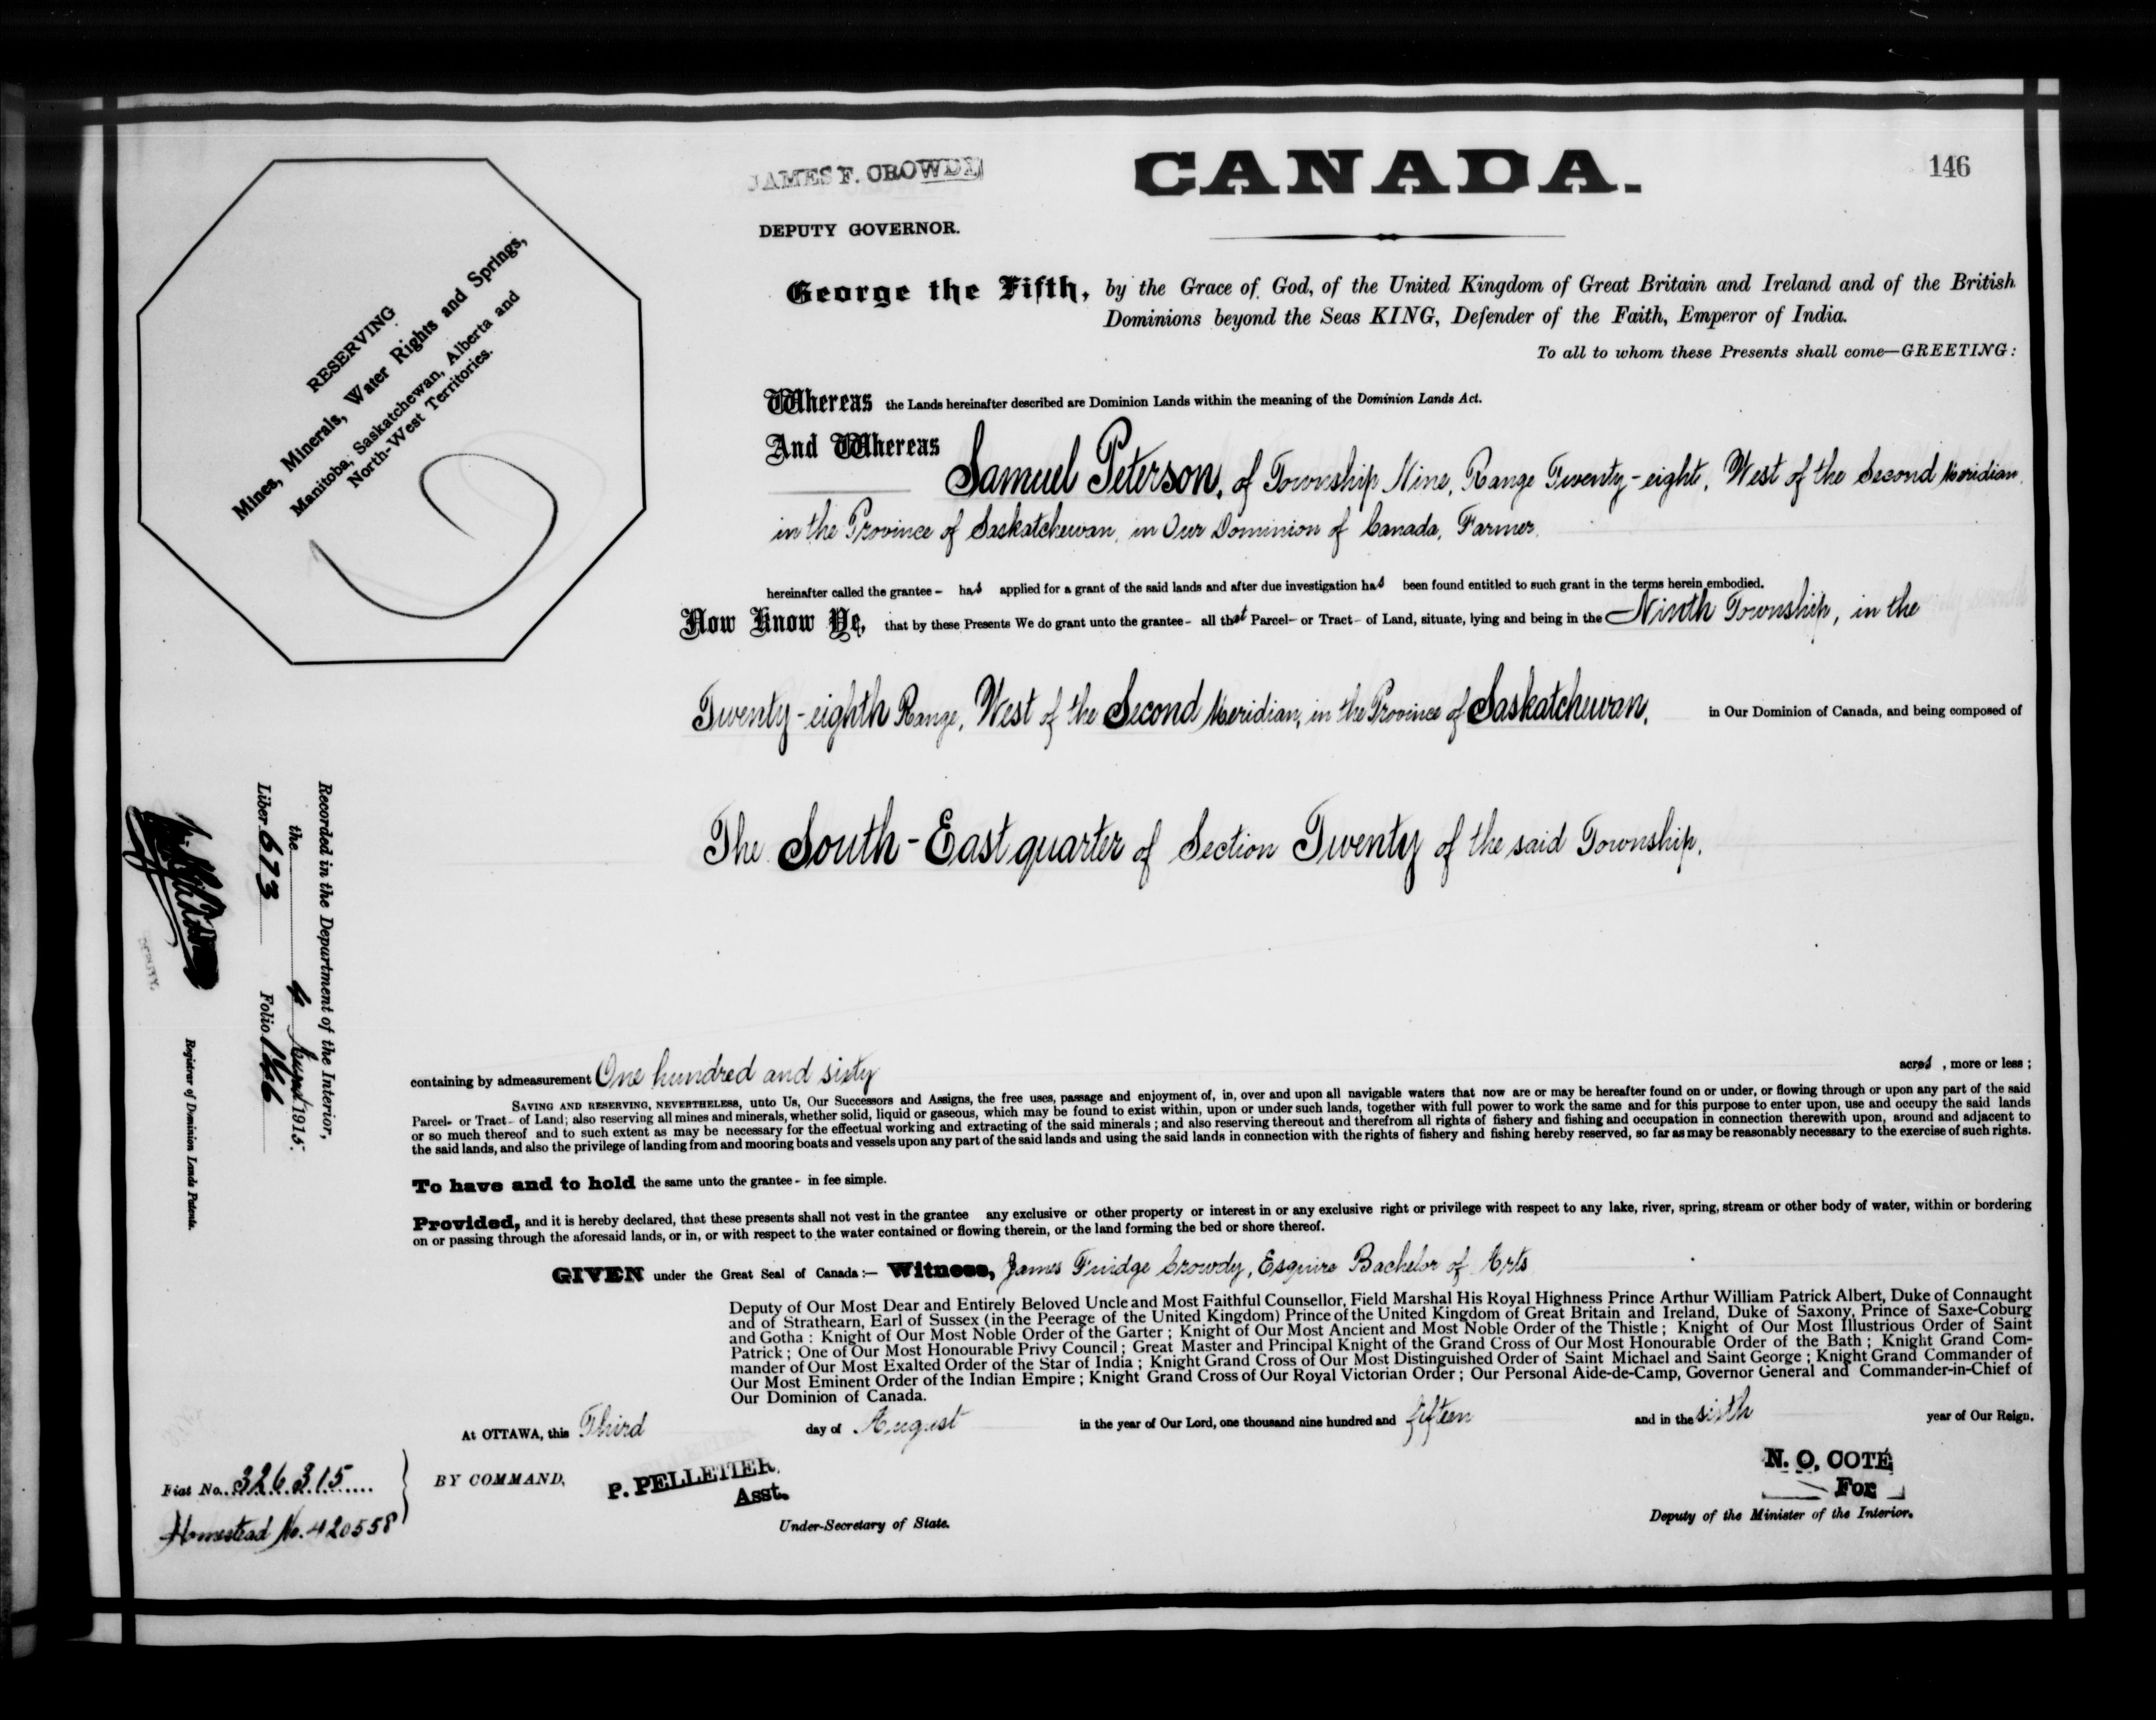 JAMES F. CROWDY
DEPUTY GOVERNOR.
CANADA.
146
RESERVING
Mines, Minerals, Water Rights and Springs,
Manitoba, Saskatchewan, Alberta and
North-West Territories.
George the Fifth, by the Grace of God, of the United Kingdom of Great Britain and Ireland and of the British
Dominions beyond the Seas KING, Defender of the Faith, Emperor of India.
To all to whom these Presents shall come—GREETING:
Whereas the Lands hereinafter described are Dominion Lands within the meaning of the Dominion Lands Act.
And Whereas
Samuel Peterson, of Township Nine, Range Twenty-eight, West of the Second Meridian,
in the Province of Saskatchewan, in Our Dominion of Canada, Farmer,
hereinafter called the grantee - has applied for a grant of the said lands and after due investigation has been found entitled to such grant in the terms herein embodied.
Now Know Ye, that by these Presents We do grant unto the grantee - all that Parcel - or Tract - of Land, situate, lying and being in the Ninth Township, in the
Twenty-eighth Range, West of the Second Meridian, in the Province of Saskatchewan, in Our Dominion of Canada, and being composed of
The South-East quarter of Section Twenty of the said Township.
containing by admeasurement One hundred and sixty acres, more or less;
SAVING AND RESERVING, NEVERTHELESS, unto Us, Our Successors and Assigns, the free uses, passage and enjoyment of, in, over and upon all navigable waters that now are or may be hereafter found on or under, or flowing through or upon any part of the said
Parcel - or Tract - of Land; also reserving all mines and minerals, whether solid, liquid or gaseous, which may be found to exist within, upon or under such lands, together with full power to work the same and for this purpose to enter upon, use and occupy the said lands
or so much thereof and to such extent as may be necessary for the effectual working and extracting of the said minerals; and also reserving thereout and therefrom all rights of fishery and fishing and occupation in connection therewith upon, around and adjacent to
the said lands, and also the privilege of landing from and mooring boats and vessels upon any part of the said lands and using the said lands in connection with the rights of fishery and fishing hereby reserved, so far as may be reasonably necessary to the exercise of such rights.
To have and to hold the same unto the grantee - in fee simple.
Provided, and it is hereby declared, that these presents shall not vest in the grantee any exclusive or other property or interest in or any exclusive right or privilege with respect to any lake, river, spring, stream or other body of water, within or bordering
on or passing through the aforesaid lands, or in, or with respect to the water contained or flowing therein, or the land forming the bed or shore thereof.
GIVEN under the Great Seal of Canada:— Witness, James Fuidge Crowdy, Esquire Bachelor of Arts
Deputy of Our Most Dear and Entirely Beloved Uncle and Most Faithful Counsellor, Field Marshal His Royal Highness Prince Arthur William Patrick Albert, Duke of Connaught
and of Strathearn, Earl of Sussex (in the Peerage of the United Kingdom) Prince of the United Kingdom of Great Britain and Ireland, Duke of Saxony, Prince of Saxe-Coburg
and Gotha: Knight of Our Most Noble Order of the Garter; Knight of Our Most Ancient and Most Noble Order of the Thistle; Knight of Our Most Illustrious Order of Saint
Patrick; One of Our Most Honourable Privy Council; Great Master and Principal Knight of the Grand Cross of Our Most Honourable Order of the Bath; Knight Grand Com-
mander of Our Most Exalted Order of the Star of India; Knight Grand Cross of Our Most Distinguished Order of Saint Michael and Saint George; Knight Grand Commander of
Our Most Eminent Order of the Indian Empire; Knight Grand Cross of Our Royal Victorian Order; Our Personal Aide-de-Camp, Governor General and Commander-in-Chief of
Our Dominion of Canada.
At OTTAWA, this Third day of August in the year of Our Lord, one thousand nine hundred and fifteen and in the sixth year of Our Reign.
BY COMMAND,
P. PELLETIER
Asst.
Under-Secretary of State.
N. O. COTÉ
For
Deputy of the Minister of the Interior.
Fiat No. 326315
Homestead No. 420558
Recorded in the Department of the Interior,
the 4 August 1915.
Liber 673 Folio 146
DEPUTY.
Registrar of Dominion Lands Patents.